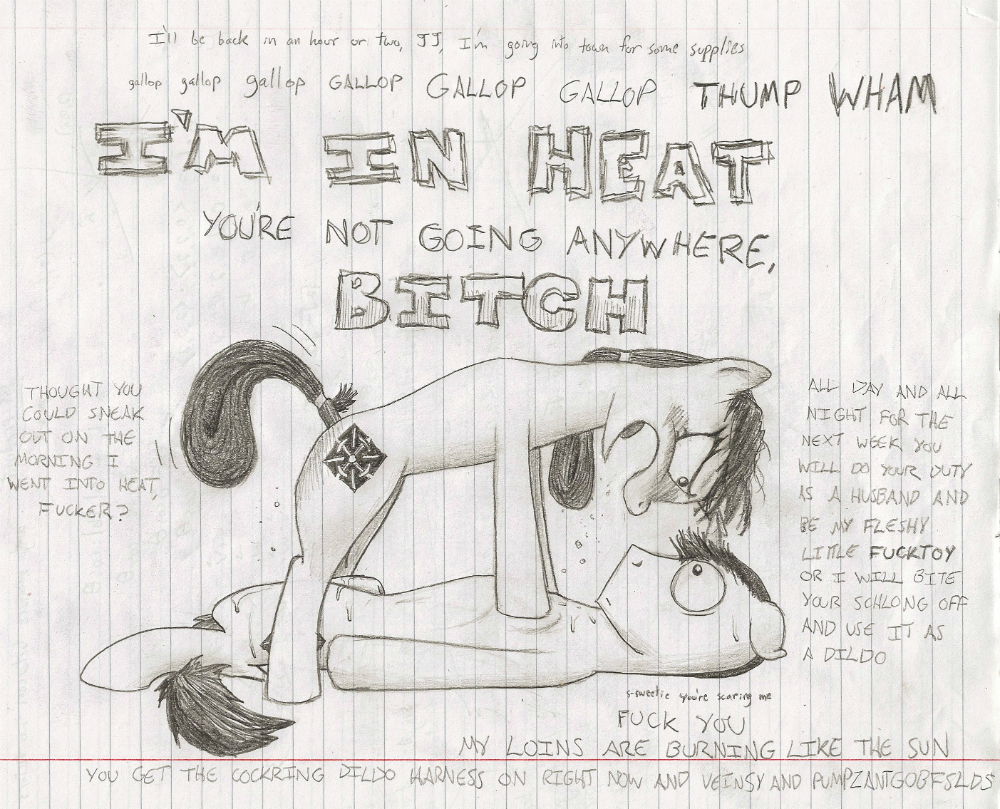 I'll be back in an hour or two, JJ, I'm going into town for some supplies
gallop gallop gallop GALLOP GALLOP GALLOP THUMP WHAM
I'M IN HEAT
YOU'RE NOT GOING ANYWHERE,
BITCH
THOUGHT YOU
COULD SNEAK
OUT ON THE
MORNING I
WENT INTO HEAT,
FUCKER?
ALL DAY AND ALL
NIGHT FOR THE
NEXT WEEK YOU
WILL DO YOUR DUTY
AS A HUSBAND AND
BE MY FLESHY
LITTLE FUCKTOY
OR I WILL BITE
YOUR SCHLONG OFF
AND USE IT AS
A DILDO
s-sweetie you're scaring me
FUCK YOU
MY LOINS ARE BURNING LIKE THE SUN
YOU GET THE COCKRING DILDO HARNESS ON RIGHT NOW AND VEINSY AND